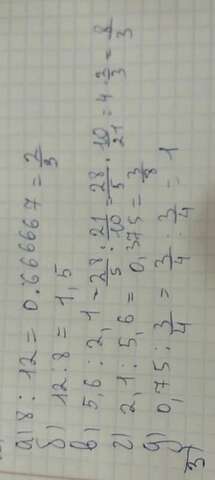 а) 8 : 12 = 0.666667 = 2/3
б) 12 : 8 = 1,5
в) 5,6 : 2,1 = 28/5 : 21/10 = 28/5 · 10/21 = 4 · 2/3 = 8/3
г) 2,1 : 5,6 = 0,375 = 3/8
д) 0,75 : 3/4 = 3/4 : 3/4 = 1
3)